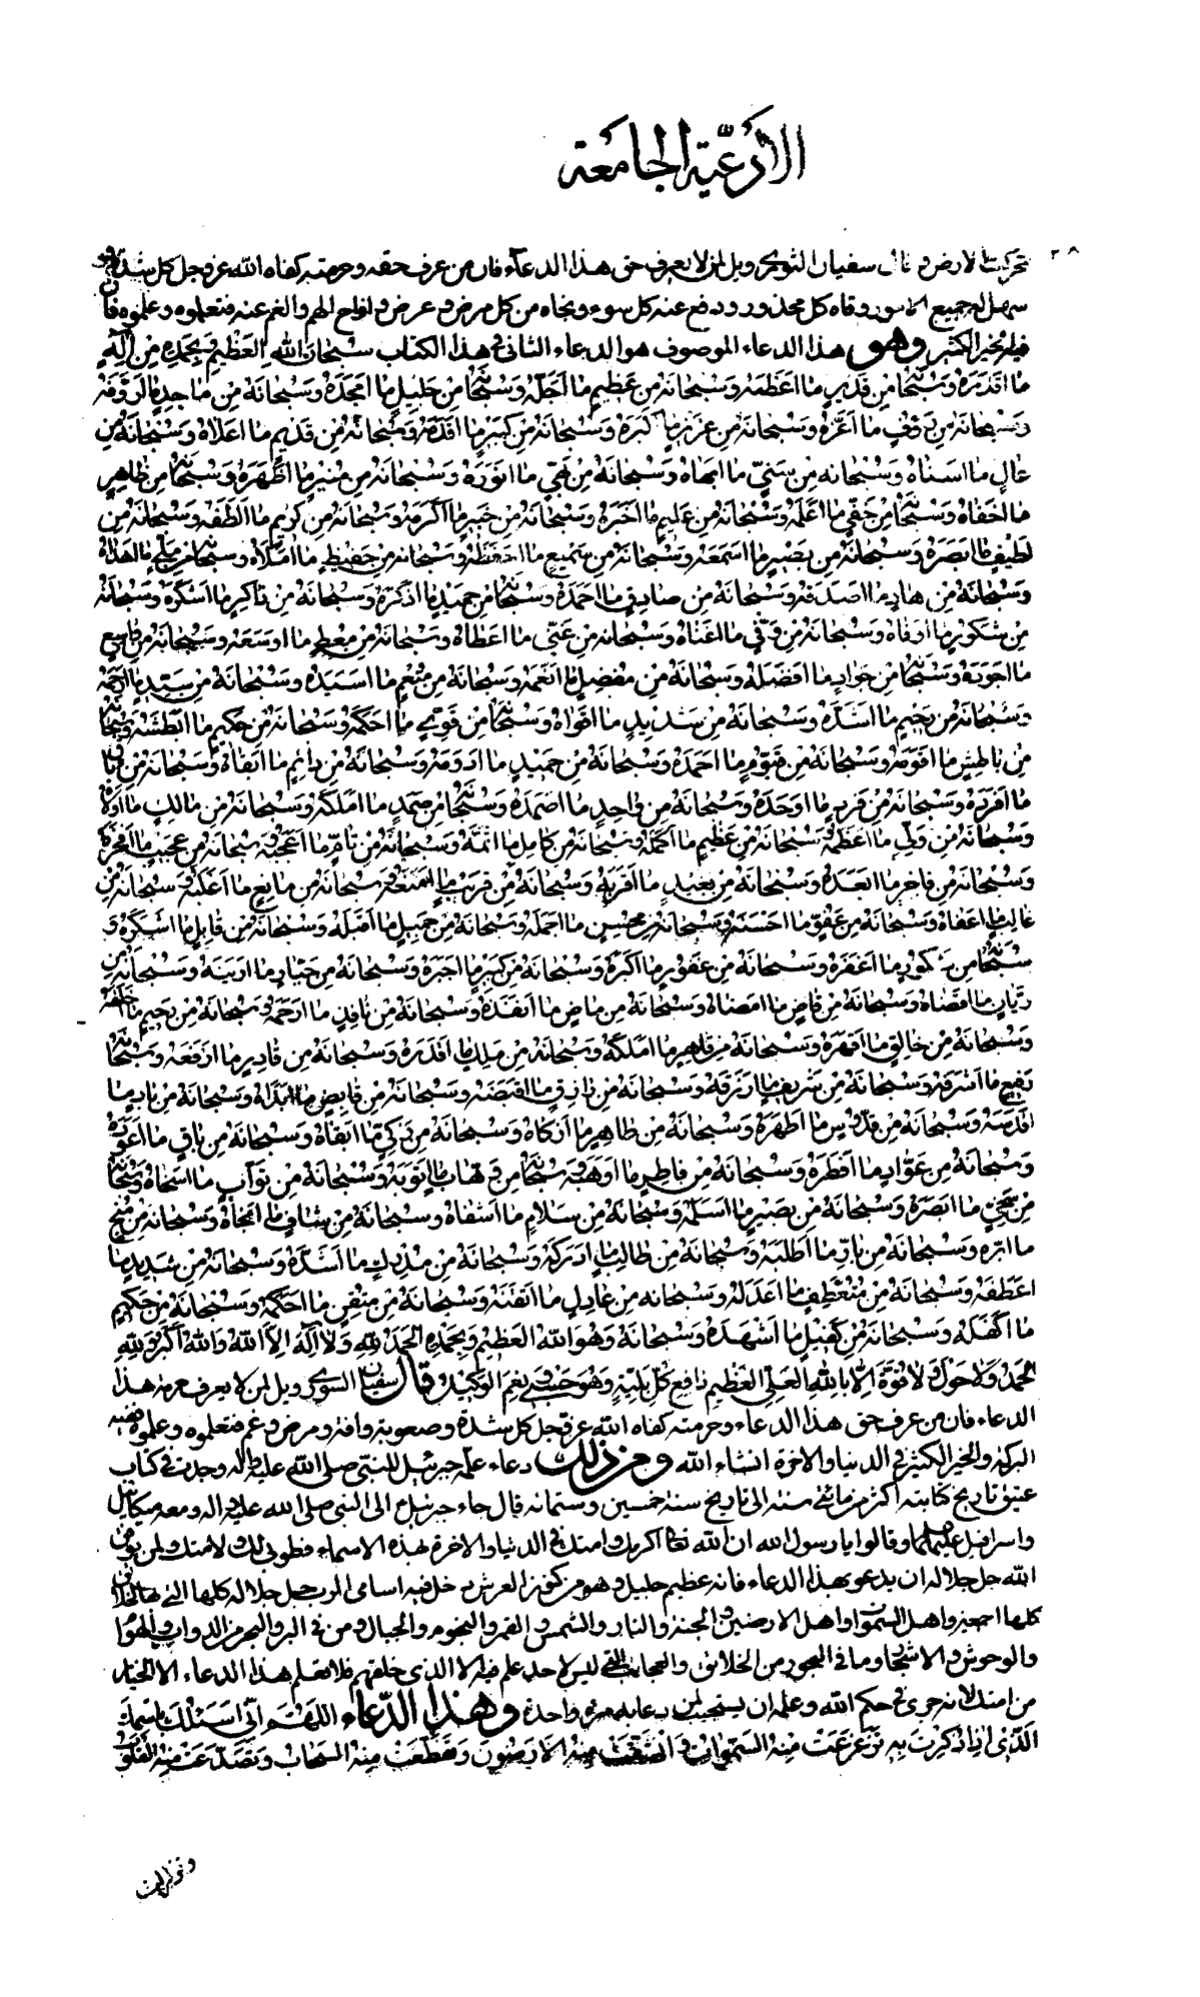 الأدعية الجامعة
٣٨
تحركت الارض وقال سفيان الثوري ويل لمن لا يعرف حق هذا الدعاء فان من عرف حقه وحرمته كفاه الله عز وجل كل شدة
سهل له جميع الامور ووقاه كل محذور ودفع عنه كل سوء ونجاه من كل مرض وعرض وازاح الهم والغم عنه فتعلموه وعلموه فان
فيه الخير الكثير وهو هذا الدعاء الموصوف هو الدعاء الثاني في هذا الكتاب سُبْحانَ اللهِ العَظيمِ وَبِحَمْدِهِ مِنْ اِلهٍ
ما اَقْدَرَهُ وَسُبْحانَهُ مِنْ قَديرٍ ما اَعْظَمَهُ وَسُبْحانَهُ مِنْ عَظيمٍ ما اَجَلَّهُ وَسُبْحانَهُ مِنْ جَليلٍ ما اَمْجَدَهُ وَسُبْحانَهُ مِنْ ماجِدٍ ما اَرْؤَفَهُ
وَسُبْحانَهُ مِنْ رَؤُفٍ ما اَعَزَّهُ وَسُبْحانَهُ مِنْ عَزيزٍ ما اَكْبَرَهُ وَسُبْحانَهُ مِنْ كَبيرٍ ما اَقْدَمَهُ وَسُبْحانَهُ مِنْ قَديمٍ ما اَعْلاهُ وَسُبْحانَهُ مِنْ
عالٍ ما اَسْناهُ وَسُبْحانَهُ مِنْ سَنِيٍّ ما اَبْهاهُ وَسُبْحانَهُ مِنْ بَهِيٍّ ما اَنْوَرَهُ وَسُبْحانَهُ مِنْ مُنيرٍ ما اَظْهَرَهُ وَسُبْحانَهُ مِنْ ظاهِرٍ
ما اَخْفاهُ وَسُبْحانَهُ مِنْ خَفِيٍّ ما اَعْلَمَهُ وَسُبْحانَهُ مِنْ عَليمٍ ما اَخْبَرَهُ وَسُبْحانَهُ مِنْ خَبيرٍ ما اَكْرَمَهُ وَسُبْحانَهُ مِنْ كَريمٍ ما اَلْطَفَهُ وَسُبْحانَهُ مِنْ
لَطيفٍ ما اَبْصَرَهُ وَسُبْحانَهُ مِنْ بَصيرٍ ما اَسْمَعَهُ وَسُبْحانَهُ مِنْ سَميعٍ ما اَحْفَظَهُ وَسُبْحانَهُ مِنْ حَفيظٍ ما اَمْلاهُ وَسُبْحانَهُ مِنْ مَلِيٍّ ما اَهْداهُ
وَسُبْحانَهُ مِنْ هادٍ ما اَصْدَقَهُ وَسُبْحانَهُ مِنْ صادِقٍ ما اَحْمَدَهُ وَسُبْحانَهُ مِنْ حَميدٍ ما اَذْكَرَهُ وَسُبْحانَهُ مِنْ ذاكِرٍ ما اَشْكَرَهُ وَسُبْحانَهُ
مِنْ شَكُورٍ ما اَوْفاهُ وَسُبْحانَهُ مِنْ وَفِيٍّ ما اَغْناهُ وَسُبْحانَهُ مِنْ غَنِيٍّ ما اَعْطاهُ وَسُبْحانَهُ مِنْ مُعْطٍ ما اَوْسَعَهُ وَسُبْحانَهُ مِنْ واسِعٍ
ما اَجْوَدَهُ وَسُبْحانَهُ مِنْ جَوادٍ ما اَفْضَلَهُ وَسُبْحانَهُ مِنْ مُفْضِلٍ ما اَنْعَمَهُ وَسُبْحانَهُ مِنْ مُنْعِمٍ ما اَسْيَدَهُ وَسُبْحانَهُ مِنْ سَيِّدٍ ما اَرْحَمَهُ
وَسُبْحانَهُ مِنْ رَحيمٍ ما اَشَدَّهُ وَسُبْحانَهُ مِنْ شَديدٍ ما اَقْواهُ وَسُبْحانَهُ مِنْ قَوِيٍّ ما اَحْكَمَهُ وَسُبْحانَهُ مِنْ حَكيمٍ ما اَبْطَشَهُ وَسُبْحانَهُ
مِنْ باطِشٍ ما اَقْوَمَهُ وَسُبْحانَهُ مِنْ قَيُّومٍ ما اَحْمَدَهُ وَسُبْحانَهُ مِنْ حَميدٍ ما اَدْوَمَهُ وَسُبْحانَهُ مِنْ دائِمٍ ما اَبْقاهُ وَسُبْحانَهُ مِنْ باقٍ
ما اَفْرَدَهُ وَسُبْحانَهُ مِنْ فَرْدٍ ما اَوْحَدَهُ وَسُبْحانَهُ مِنْ واحِدٍ ما اَصْمَدَهُ وَسُبْحانَهُ مِنْ صَمَدٍ ما اَمْلَكَهُ وَسُبْحانَهُ مِنْ مالِكٍ ما اَوْلاهُ
وَسُبْحانَهُ مِنْ وَلِيٍّ ما اَعْظَمَهُ وَسُبْحانَهُ مِنْ عَظيمٍ ما اَكْمَلَهُ وَسُبْحانَهُ مِنْ كامِلٍ ما اَتَمَّهُ وَسُبْحانَهُ مِنْ تامٍّ ما اَعْجَبَهُ وَسُبْحانَهُ مِنْ عَجيبٍ ما اَفْخَرَهُ
وَسُبْحانَهُ مِنْ فاخِرٍ ما اَبْعَدَهُ وَسُبْحانَهُ مِنْ بَعيدٍ ما اَقْرَبَهُ وَسُبْحانَهُ مِنْ قَريبٍ ما اَمْنَعَهُ وَسُبْحانَهُ مِنْ مانِعٍ ما اَغْلَبَهُ وَسُبْحانَهُ مِنْ
غالِبٍ ما اَعْفاهُ وَسُبْحانَهُ مِنْ عَفُوٍّ ما اَحْسَنَهُ وَسُبْحانَهُ مِنْ مُحْسِنٍ ما اَجْمَلَهُ وَسُبْحانَهُ مِنْ جَميلٍ ما اَقْبَلَهُ وَسُبْحانَهُ مِنْ قابِلٍ ما اَشْكَرَهُ وَ
سُبْحانَهُ مِنْ شَكُورٍ ما اَغْفَرَهُ وَسُبْحانَهُ مِنْ غَفُورٍ ما اَكْبَرَهُ وَسُبْحانَهُ مِنْ كَبيرٍ ما اَجْبَرَهُ وَسُبْحانَهُ مِنْ جَبّارٍ ما اَدْيَنَهُ وَسُبْحانَهُ مِنْ
دَيّانٍ ما اَقْضاهُ وَسُبْحانَهُ مِنْ قاضٍ ما اَمْضاهُ وَسُبْحانَهُ مِنْ ماضٍ ما اَنْفَذَهُ وَسُبْحانَهُ مِنْ نافِذٍ ما اَرْحَمَهُ وَسُبْحانَهُ مِنْ رَحيمٍ ما اَخْلَقَهُ
وَسُبْحانَهُ مِنْ خالِقٍ ما اَقْهَرَهُ وَسُبْحانَهُ مِنْ قاهِرٍ ما اَمْلَكَهُ وَسُبْحانَهُ مِنْ مَليكٍ ما اَقْدَرَهُ وَسُبْحانَهُ مِنْ قادِرٍ ما اَرْفَعَهُ وَسُبْحانَهُ مِنْ
رَفيعٍ ما اَشْرَفَهُ وَسُبْحانَهُ مِنْ شَريفٍ ما اَرْزَقَهُ وَسُبْحانَهُ مِنْ رازِقٍ ما اَقْبَضَهُ وَسُبْحانَهُ مِنْ قابِضٍ ما اَبْداهُ وَسُبْحانَهُ مِنْ بادٍ ما
اَقْدَسَهُ وَسُبْحانَهُ مِنْ قُدُّوسٍ ما اَطْهَرَهُ وَسُبْحانَهُ مِنْ طاهِرٍ ما اَزْكاهُ وَسُبْحانَهُ مِنْ زَكِيٍّ ما اَبْقاهُ وَسُبْحانَهُ مِنْ باقٍ ما اَعْوَدَهُ
وَسُبْحانَهُ مِنْ عَوّادٍ ما اَفْطَرَهُ وَسُبْحانَهُ مِنْ فاطِرٍ ما اَوْهَبَهُ وَسُبْحانَهُ مِنْ وَهّابٍ ما اَتْوَبَهُ وَسُبْحانَهُ مِنْ تَوّابٍ ما اَسْخاهُ وَسُبْحانَهُ
مِنْ سَخِيٍّ ما اَبْصَرَهُ وَسُبْحانَهُ مِنْ بَصيرٍ ما اَسْلَمَهُ وَسُبْحانَهُ مِنْ سَلامٍ ما اَشْفاهُ وَسُبْحانَهُ مِنْ شافٍ ما اَنْجاهُ وَسُبْحانَهُ مِنْ مُنْجٍ
ما اَبَرَّهُ وَسُبْحانَهُ مِنْ بارٍّ ما اَطْلَبَهُ وَسُبْحانَهُ مِنْ طالِبٍ ما اَدْرَكَهُ وَسُبْحانَهُ مِنْ مُدْرِكٍ ما اَشَدَّهُ وَسُبْحانَهُ مِنْ شَديدٍ ما
اَعْطَفَهُ وَسُبْحانَهُ مِنْ مُتَعَطِّفٍ ما اَعْدَلَهُ وَسُبْحانَهُ مِنْ عادِلٍ ما اَتْقَنَهُ وَسُبْحانَهُ مِنْ مُتْقِنٍ ما اَحْكَمَهُ وَسُبْحانَهُ مِنْ حَكيمٍ
ما اَكْفَلَهُ وَسُبْحانَهُ مِنْ كَفيلٍ ما اَشْهَدَهُ وَسُبْحانَهُ وَهُوَ اللهُ العَظيمُ وَبِحَمْدِهِ الحَمْدُ لِلّهِ وَلا اِلهَ اِلاَّ اللهُ وَاللهُ اَكْبَرُ وَلِلّهِ
الحَمْدُ وَلا حَوْلَ وَلا قُوَّةَ اِلاّ بِاللهِ العَلِيِّ العَظيمِ دافِعِ كُلِّ بَلِيَّةٍ وَهُوَ حَسْبي وَنِعْمَ الوَكيلُ قال سفيان الثوري ويل لمن لا يعرف حرمة هذا
الدعاء فان من عرف حق هذا الدعاء وحرمته كفاه الله عز وجل كل شدة وصعوبة وافة ومرض وغم فتعلموه وعلموه ففيه
البركة والخير الكثير في الدنيا والاخرة انشاء الله ومن ذلك دعاء علمه جبرئيل للنبي صلى الله عليه واله وجدت في كتاب
عتيق تاريخ كتابته اكثر من مائتي سنة الى تاريخ سنة خمسين وستمائة قال جاء جبرئيل الى النبي صلى الله عليه واله ومعه ميكائيل
واسرافيل عليهما السلام وقالوا يا رسول الله ان الله تعالى اكرمك وامتك في الدنيا والاخرة بهذه الاسماء فطوبى لك ولامتك ولمن يوفق
الله جل جلاله ان يدعو بهذا الدعاء فانه عظيم جليل وهو من كنوز العرش دخل فيه اسامي الرب جل جلاله كلها التي خلق بها الخلائق
كلها اجمعين واهل السموات واهل الارضين والجنة والنار والشمس والقمر والنجوم والجبال ومن في البر والبحر من الدواب والهوام
والوحوش والاشجار وما في البحور من الخلائق والعجائب التي ليس لاحد علم فيه الا الذي خلقهم فلا تعلم هذا الدعاء الا الخيار
من امتك لانه جرى في حكم الله وعلمه ان يستجيب لمن دعا به مرة واحدة وهذا الدّعاء اللّهُمَّ اِنّي اَسْئَلُكَ بِاسْمِكَ
الَّذي اِذا ذُكِرْتَ بِهِ تَزَعْزَعَتْ مِنْهُ السَّمواتُ وَانْشَقَّتْ مِنْهُ الاَرَضُونَ وَتَقَطَّعَتْ مِنْهُ السَّحابُ وَتَصَدَّعَتْ مِنْهُ القُلُوبُ